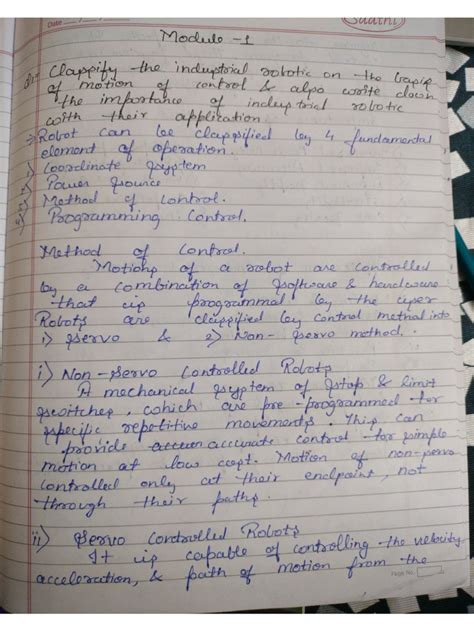 Date / /
Saathi
Module - 1
Classify the industrial robotic on the basis
of motion of control & also write down
the importance of industrial robotic
with their application
⇒ Robot can be classified by 4 fundamental
element of operation.
i) Coordinate System
ii) Power Source
iii) Method of Control.
iv) Programming Control.
Method of Control.
Motions of a robot are controlled
by a combination of software & hardware
that is programmed by the user
Robots are classified by control method into
i) Servo & 2) Non-Servo method.
i) Non-Servo Controlled Robots
A mechanical system of stop & limit
switches, which are pre-programmed for
specific repetitive movements. This can
provide accurate control for simple
motion at low cost. Motion of non-servo
controlled only at their endpoint, not
through their paths.
ii) Servo Controlled Robots
It is capable of controlling the velocity
acceleration, & path of motion from the
Page No.